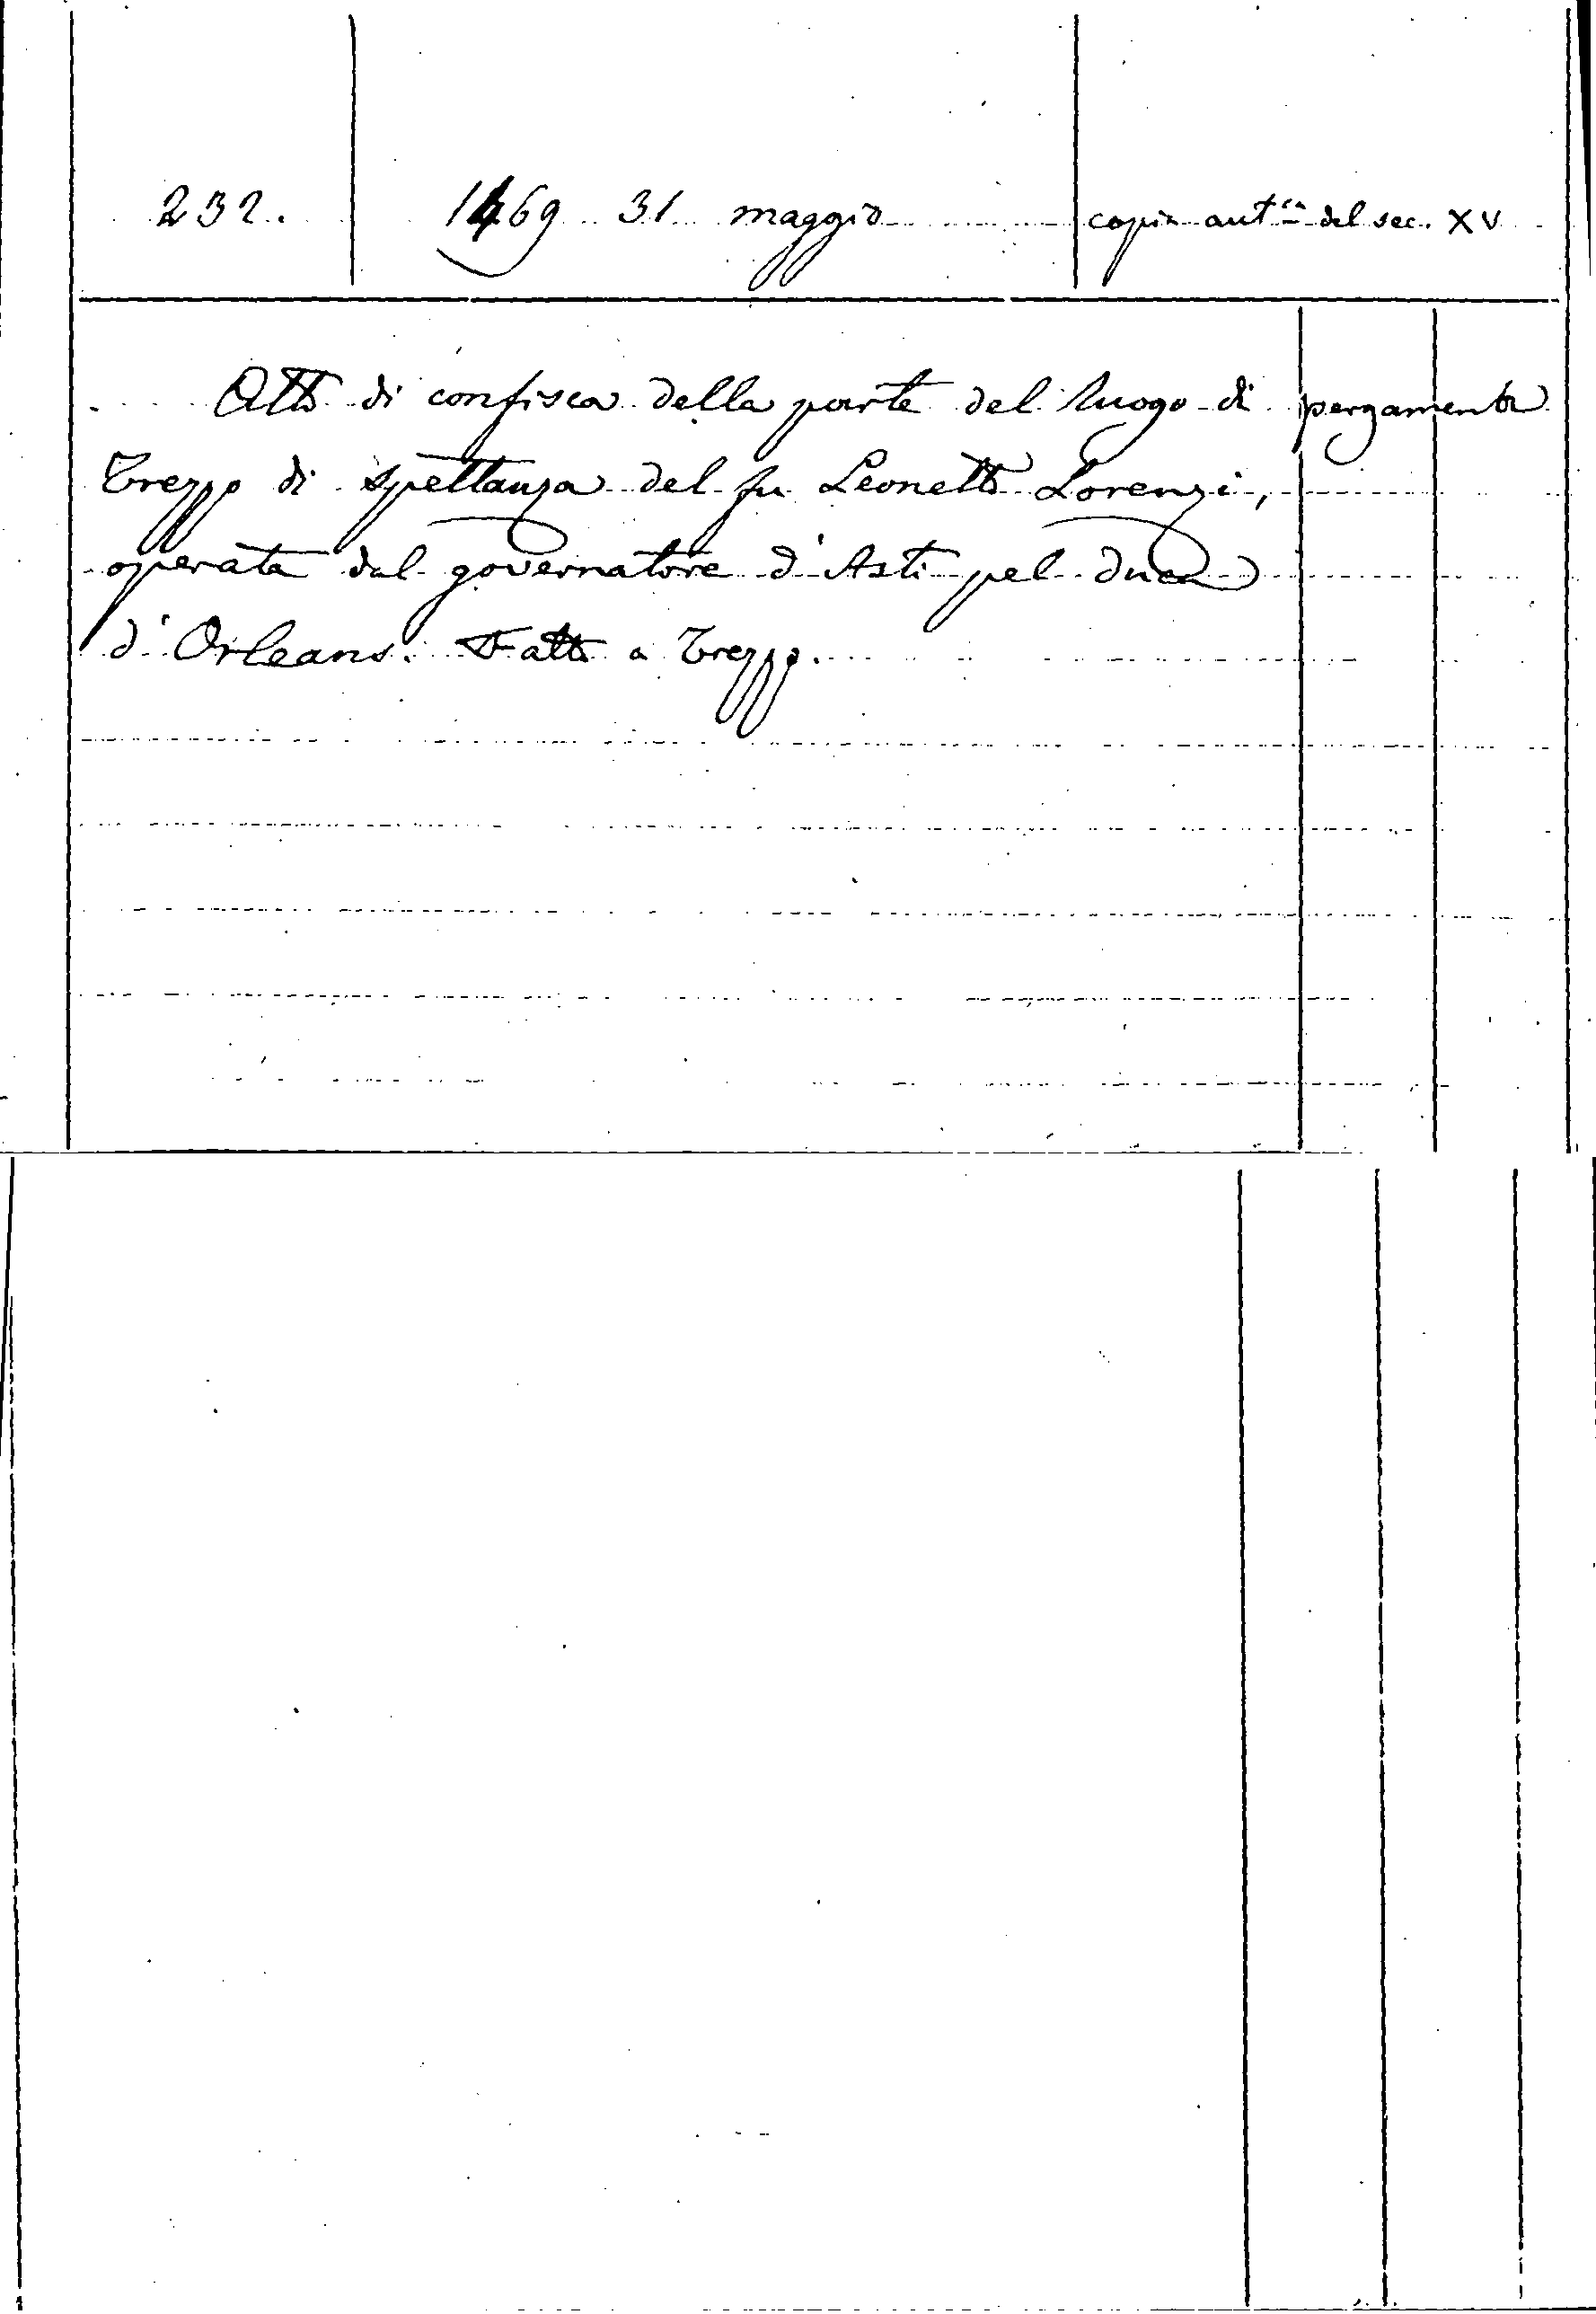 232.
1469 31 maggio
copia aut.ca del sec. XV
Atto di confisca della parte del luogo di
pergamena
Trezzo di spettanza del fu Leonetto Lorenzi,
operata dal governatore d'Asti pel duca
d'Orleans. Fatto a Trezzo.